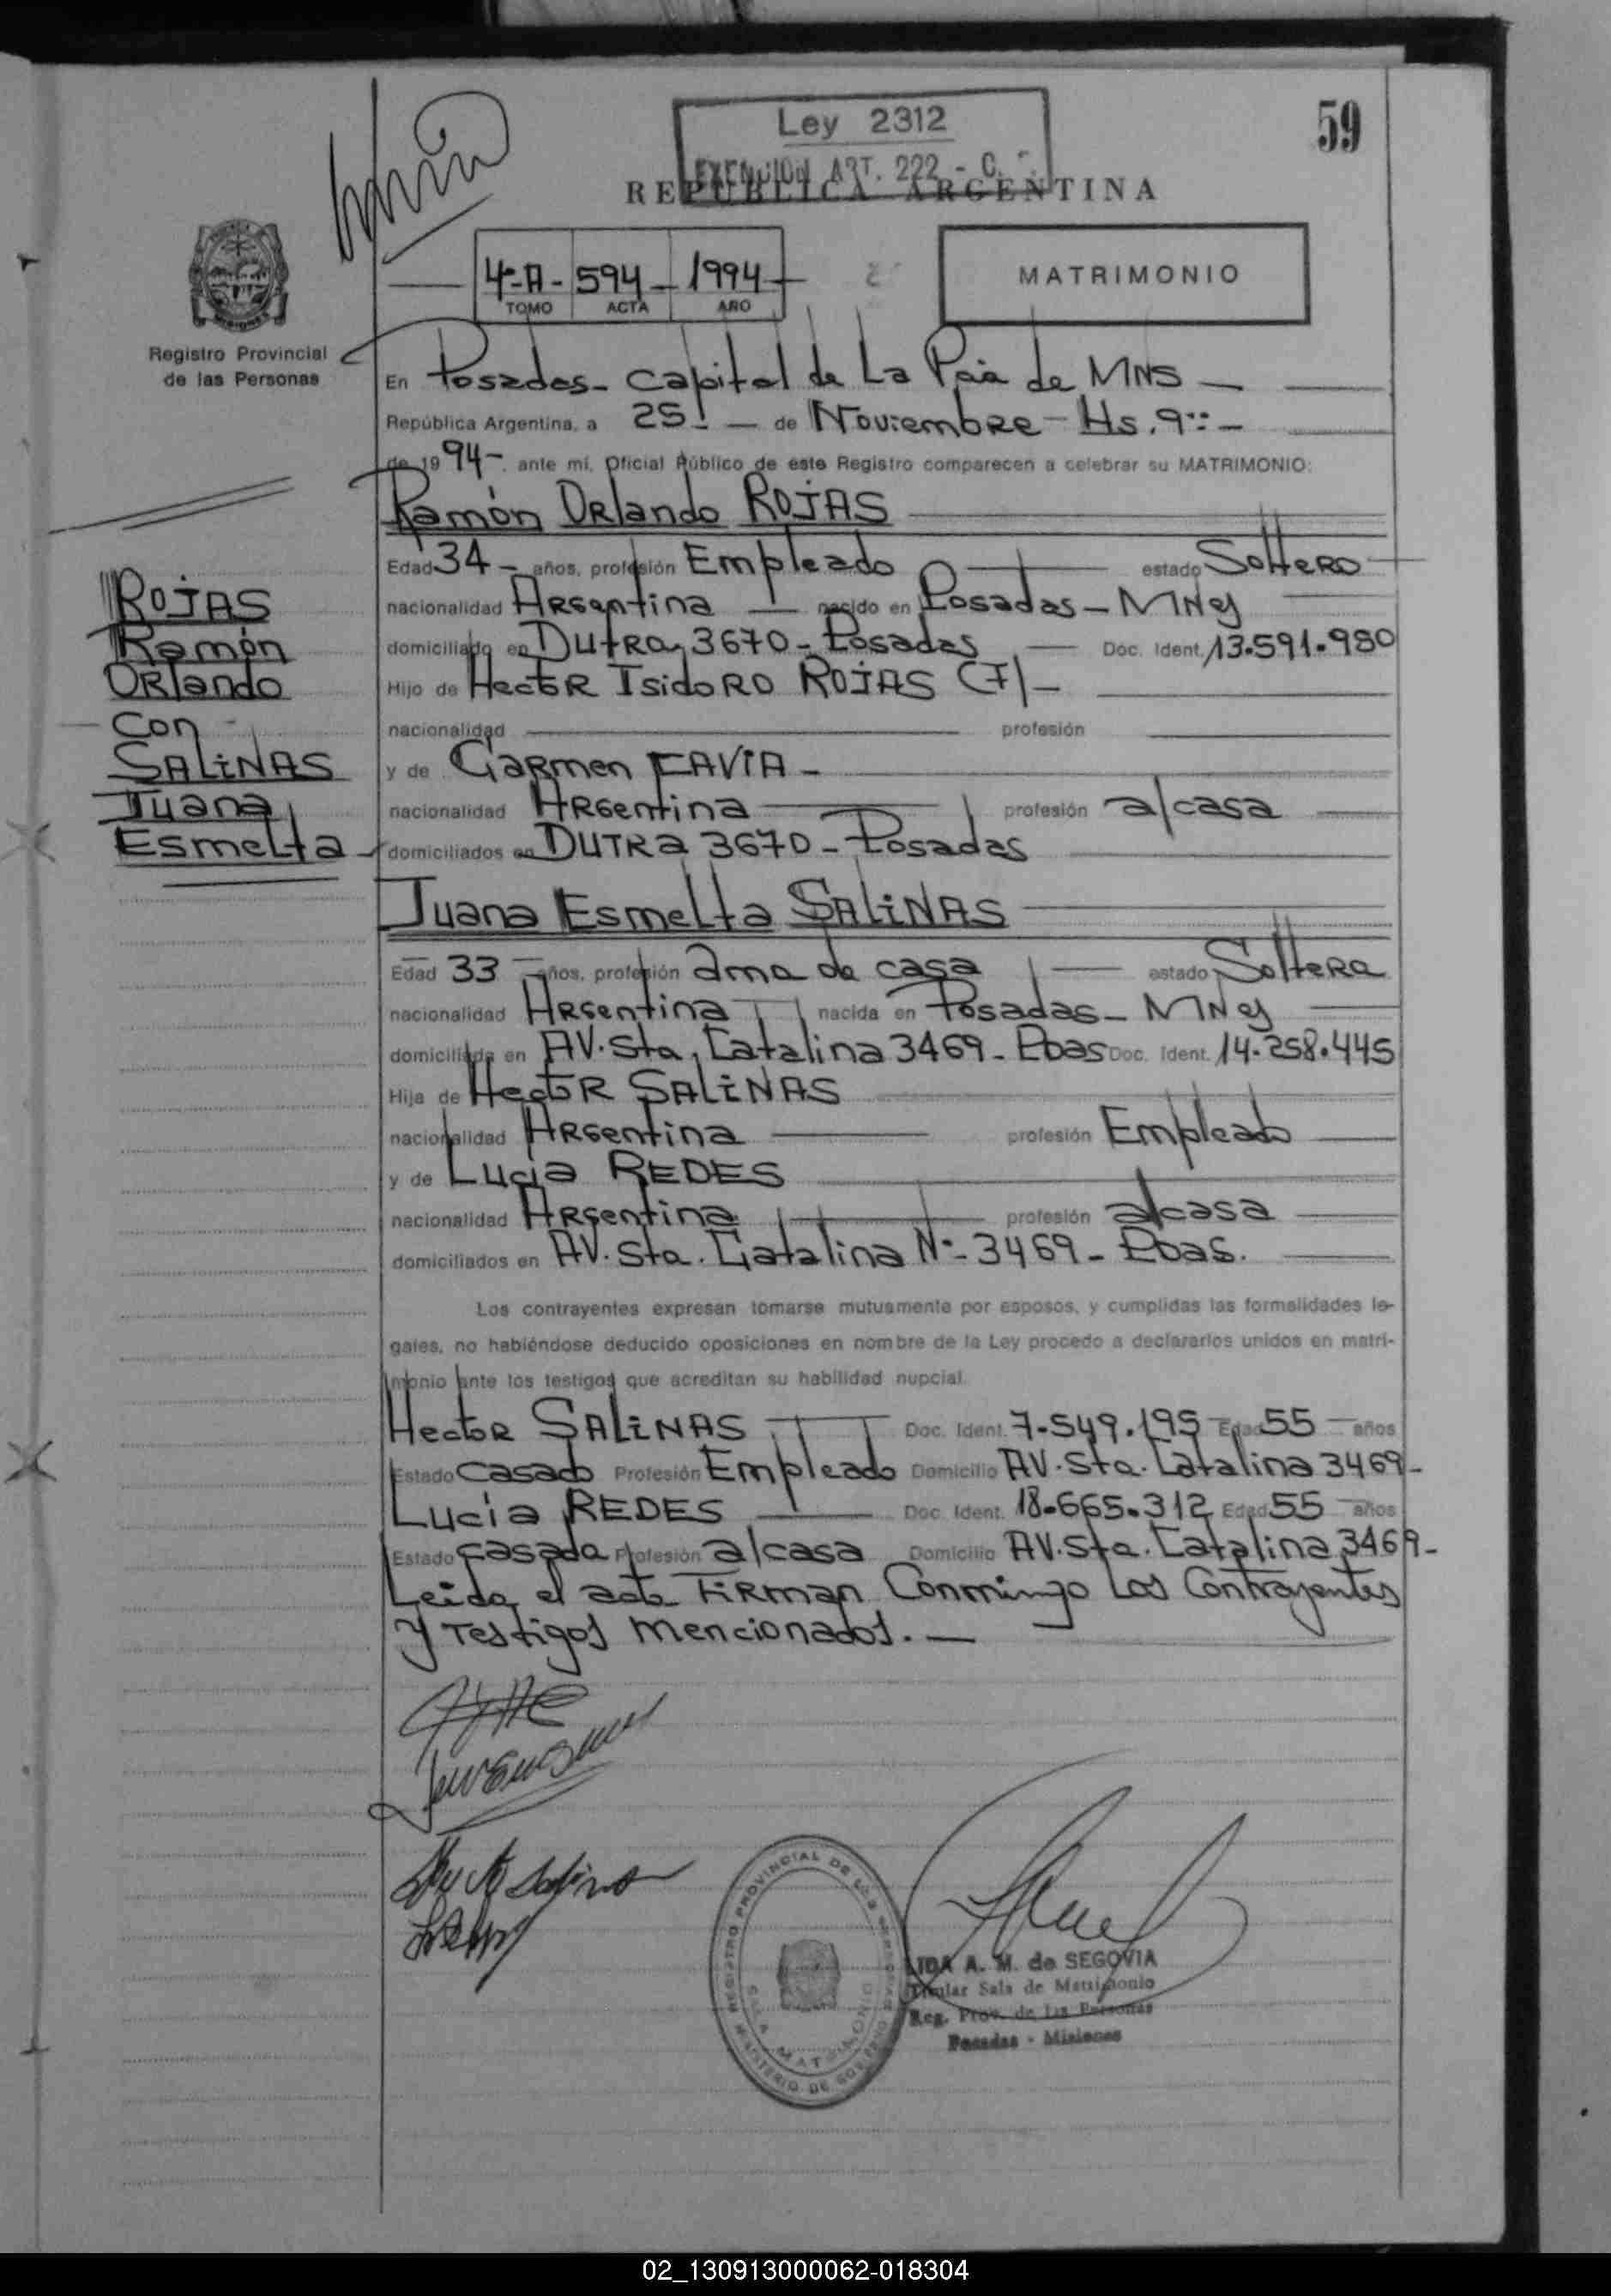 59
Ley 2312
EXENCION ART. 222 - C.
REPUBLICA ARGENTINA
4º-A- 594- 1994-
TOMO ACTA AÑO
MATRIMONIO
MISIONES
Registro Provincial
de las Personas
En Posadas- Capital de La Pcia de MNS
República Argentina, a 25 - de Noviembre - Hs. 9:: -
de 1994-, ante mí, Oficial Público de este Registro comparecen a celebrar su MATRIMONIO:
Ramón Orlando ROJAS
Edad 34 - años, profesión Empleado estado Soltero
nacionalidad Argentina - nacido en Posadas - MNes
domiciliado en Dutra, 3670 - Posadas - Doc. Ident. 13.591.980
Hijo de Hector Isidoro ROJAS (F) -
nacionalidad profesión
y de Carmen FAVIA -
nacionalidad Argentina profesión a/casa
domiciliados en DUTRa 3670 - Posadas
ROJAS
Ramón
Orlando
Con
SALINAS
Juana
Esmelta
Juana Esmelta SALINAS
Edad 33 - años, profesión ama de casa estado Soltera
nacionalidad Argentina nacida en Posadas - MNes
domiciliada en AV. Sta. Catalina 3469 - Pdas Doc. Ident. 14.258.445
Hija de Hector SALINAS
nacionalidad Argentina profesión Empleado
y de Lucia REDES
nacionalidad Argentina profesión a/casa
domiciliados en AV. Sta. Catalina Nº - 3469 - Pdas.
Los contrayentes expresan tomarse mutuamente por esposos, y cumplidas las formalidades le-
gales, no habiéndose deducido oposiciones en nombre de la Ley procedo a declararlos unidos en matri-
monio ante los testigos que acreditan su habilidad nupcial.
Hector SALINAS Doc. Ident. 7.549.195 Edad 55 - años
Estado Casado Profesión Empleado Domicilio AV. Sta. Catalina 3469 -
Lucia REDES Doc. Ident. 18.665.312 Edad 55 años
Estado Casada Profesión a/casa Domicilio AV. Sta. Catalina 3469 -
Leida el acta Firman Conmingo Los Contrayentes
y Testigos mencionados. -
REGISTRO PROVINCIAL DE LAS PERSONAS
SALA MATRIMONIO
MINISTERIO DE GOBIERNO
LIDA A. M. de SEGOVIA
Titular Sala de Matrimonio
Reg. Prov. de las Personas
Posadas - Misiones
02_130913000062-018304